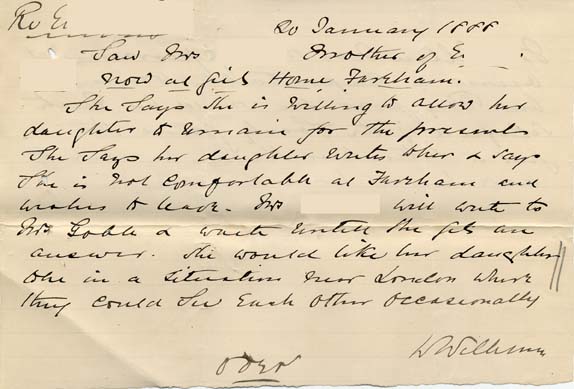 Re E
20 January 1888
Saw Mrs Mother of E
now at Girls Home Fareham.
She Says She is Willing to allow her
daughter to remain for the present
She Says her daughter writes to her & says
She is not Comfortable at Fareham and
wishes to leave. Mrs will write to
Mrs Goble & wait untill She gets an
answer. She would like her daughter
to be in a situation near London where
they could See Each Other Occasionally
over